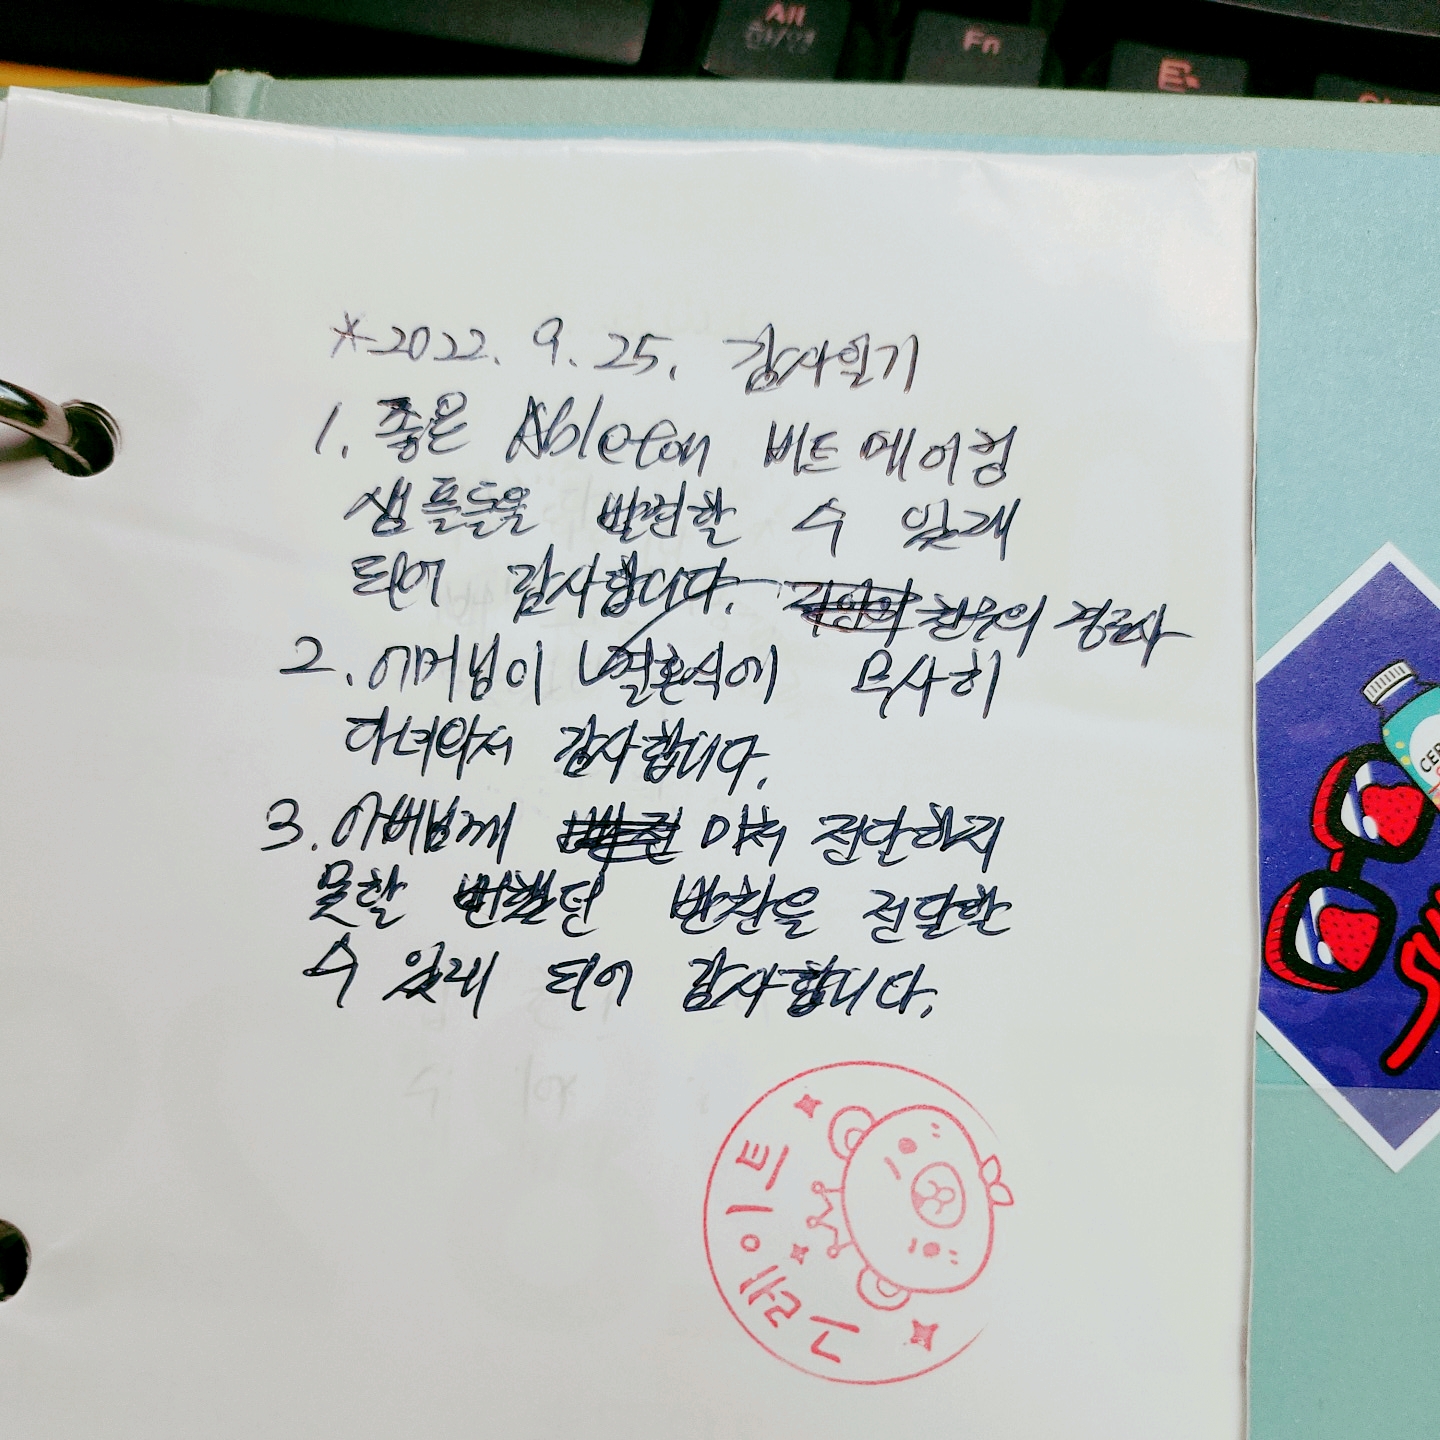 Alt
한/영
Fn
*2022. 9. 25. 감사일기
1. 좋은 Ableton 비트메이킹
샘플들을 발견할 수 있게
되어 감사합니다.
친구의 경조사
2. 어머님이 결혼식에 무사히
다녀와서 감사합니다.
3. 아버님께 미처 전달하지
못할 뻔했던 반찬을 전달할
수 있게 되어 감사합니다.
그레이트
CER